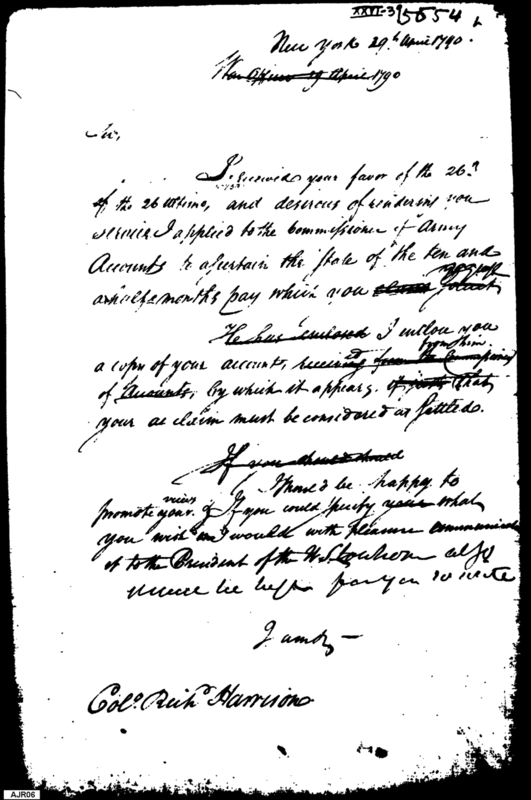 XXVI-3 5554
New York 29th April 1790.
War Office 29 April 1790
Sir,
I received your favor of the 26th
of the 26 ultimo, and desirous of rendering you
service I applied to the Commissioner of Army
Accounts to ascertain the State of the ten and
an half months pay which you
He has enclosed I inclose you
from him
a copy of your account, received from the Commissioner
of Accounts, by which it appears, that
your ac claim must be considered as settled.
If you should
I should be happy to
views
promote your If you could specify your what
you wish and I would with pleasure communicate
it to the President of the U.S. to whom also
it to write
I am &
Colo. Richd. Harrison
AJR06